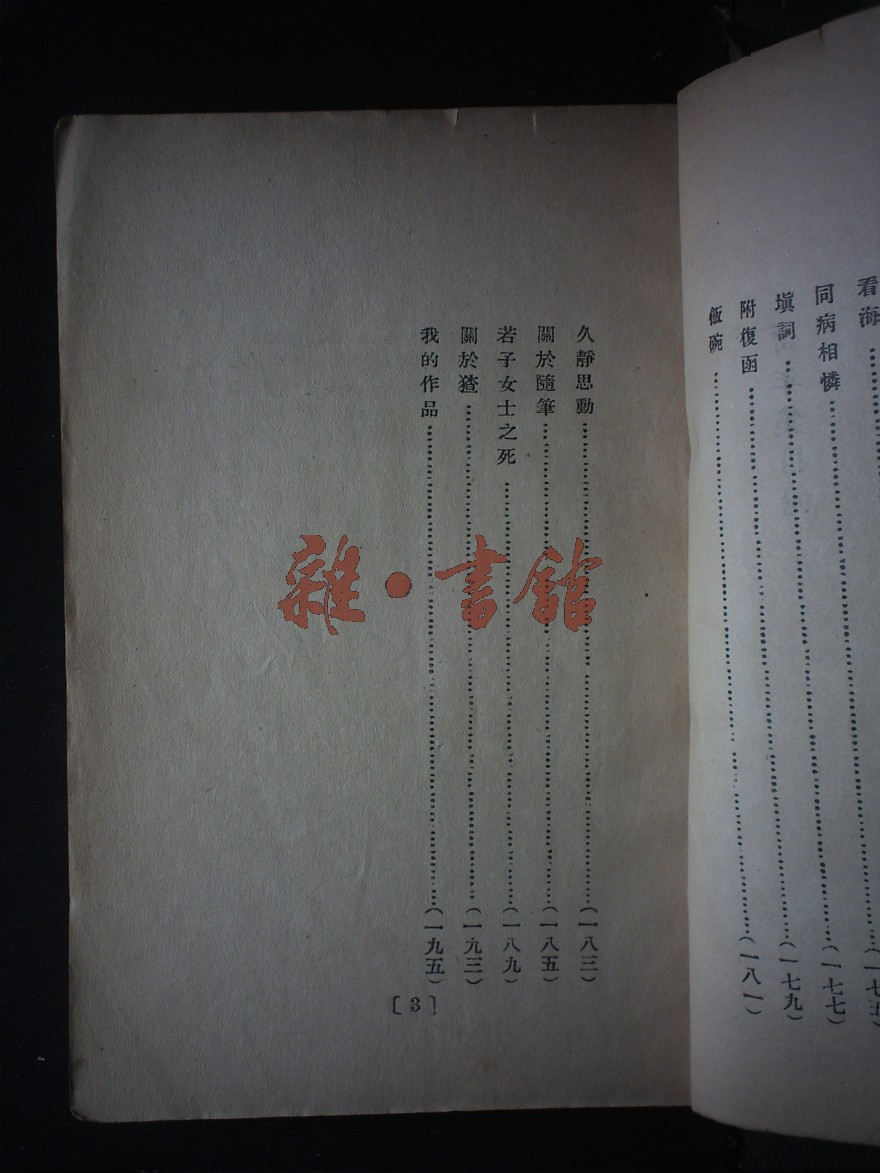 看海
同病相憐 (一七五)
塡詞 (一七七)
附復函 (一七九)
飯碗 (一八一)
久靜思動 (一八三)
關於隨筆 (一八五)
若子女士之死 (一八九)
關於猹 (一九三)
我的作品 (一九五)
[3]
雜·書館